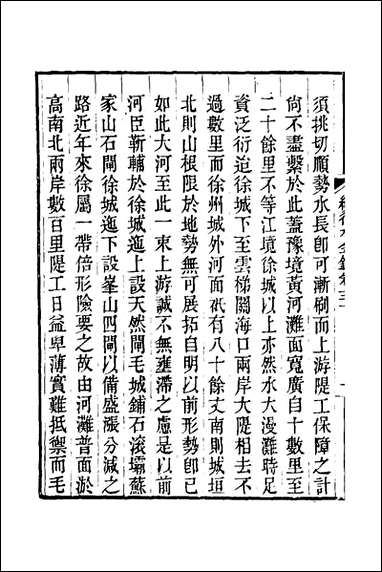 須挑切順勢水長卽可漸刷而上游隄工保障之計
尙不盡繫於此蓋豫境黃河灘面寬廣自十數里至
二十餘里不等江境徐城以上亦然水大漫灘時足
資泛衍迨徐城下至雲梯關海口兩岸大隄相去不
過數里而徐州城外河面祇有八十餘丈南則城垣
北則山根限於地勢無可展拓自明以前形勢卽已
如此大河至此一束上游誠不無壅滯之慮是以前
河臣靳輔於徐城迤上設天然閘毛城鋪石滾壩蘇
家山石閘徐城迤下設峯山四閘以備盛漲分減之
路近年來徐屬一帶倍形險要之故由河灘普面淤
高南北兩岸數百里隄工日益卑薄實難抵禦而毛
續行水金鑑卷三十